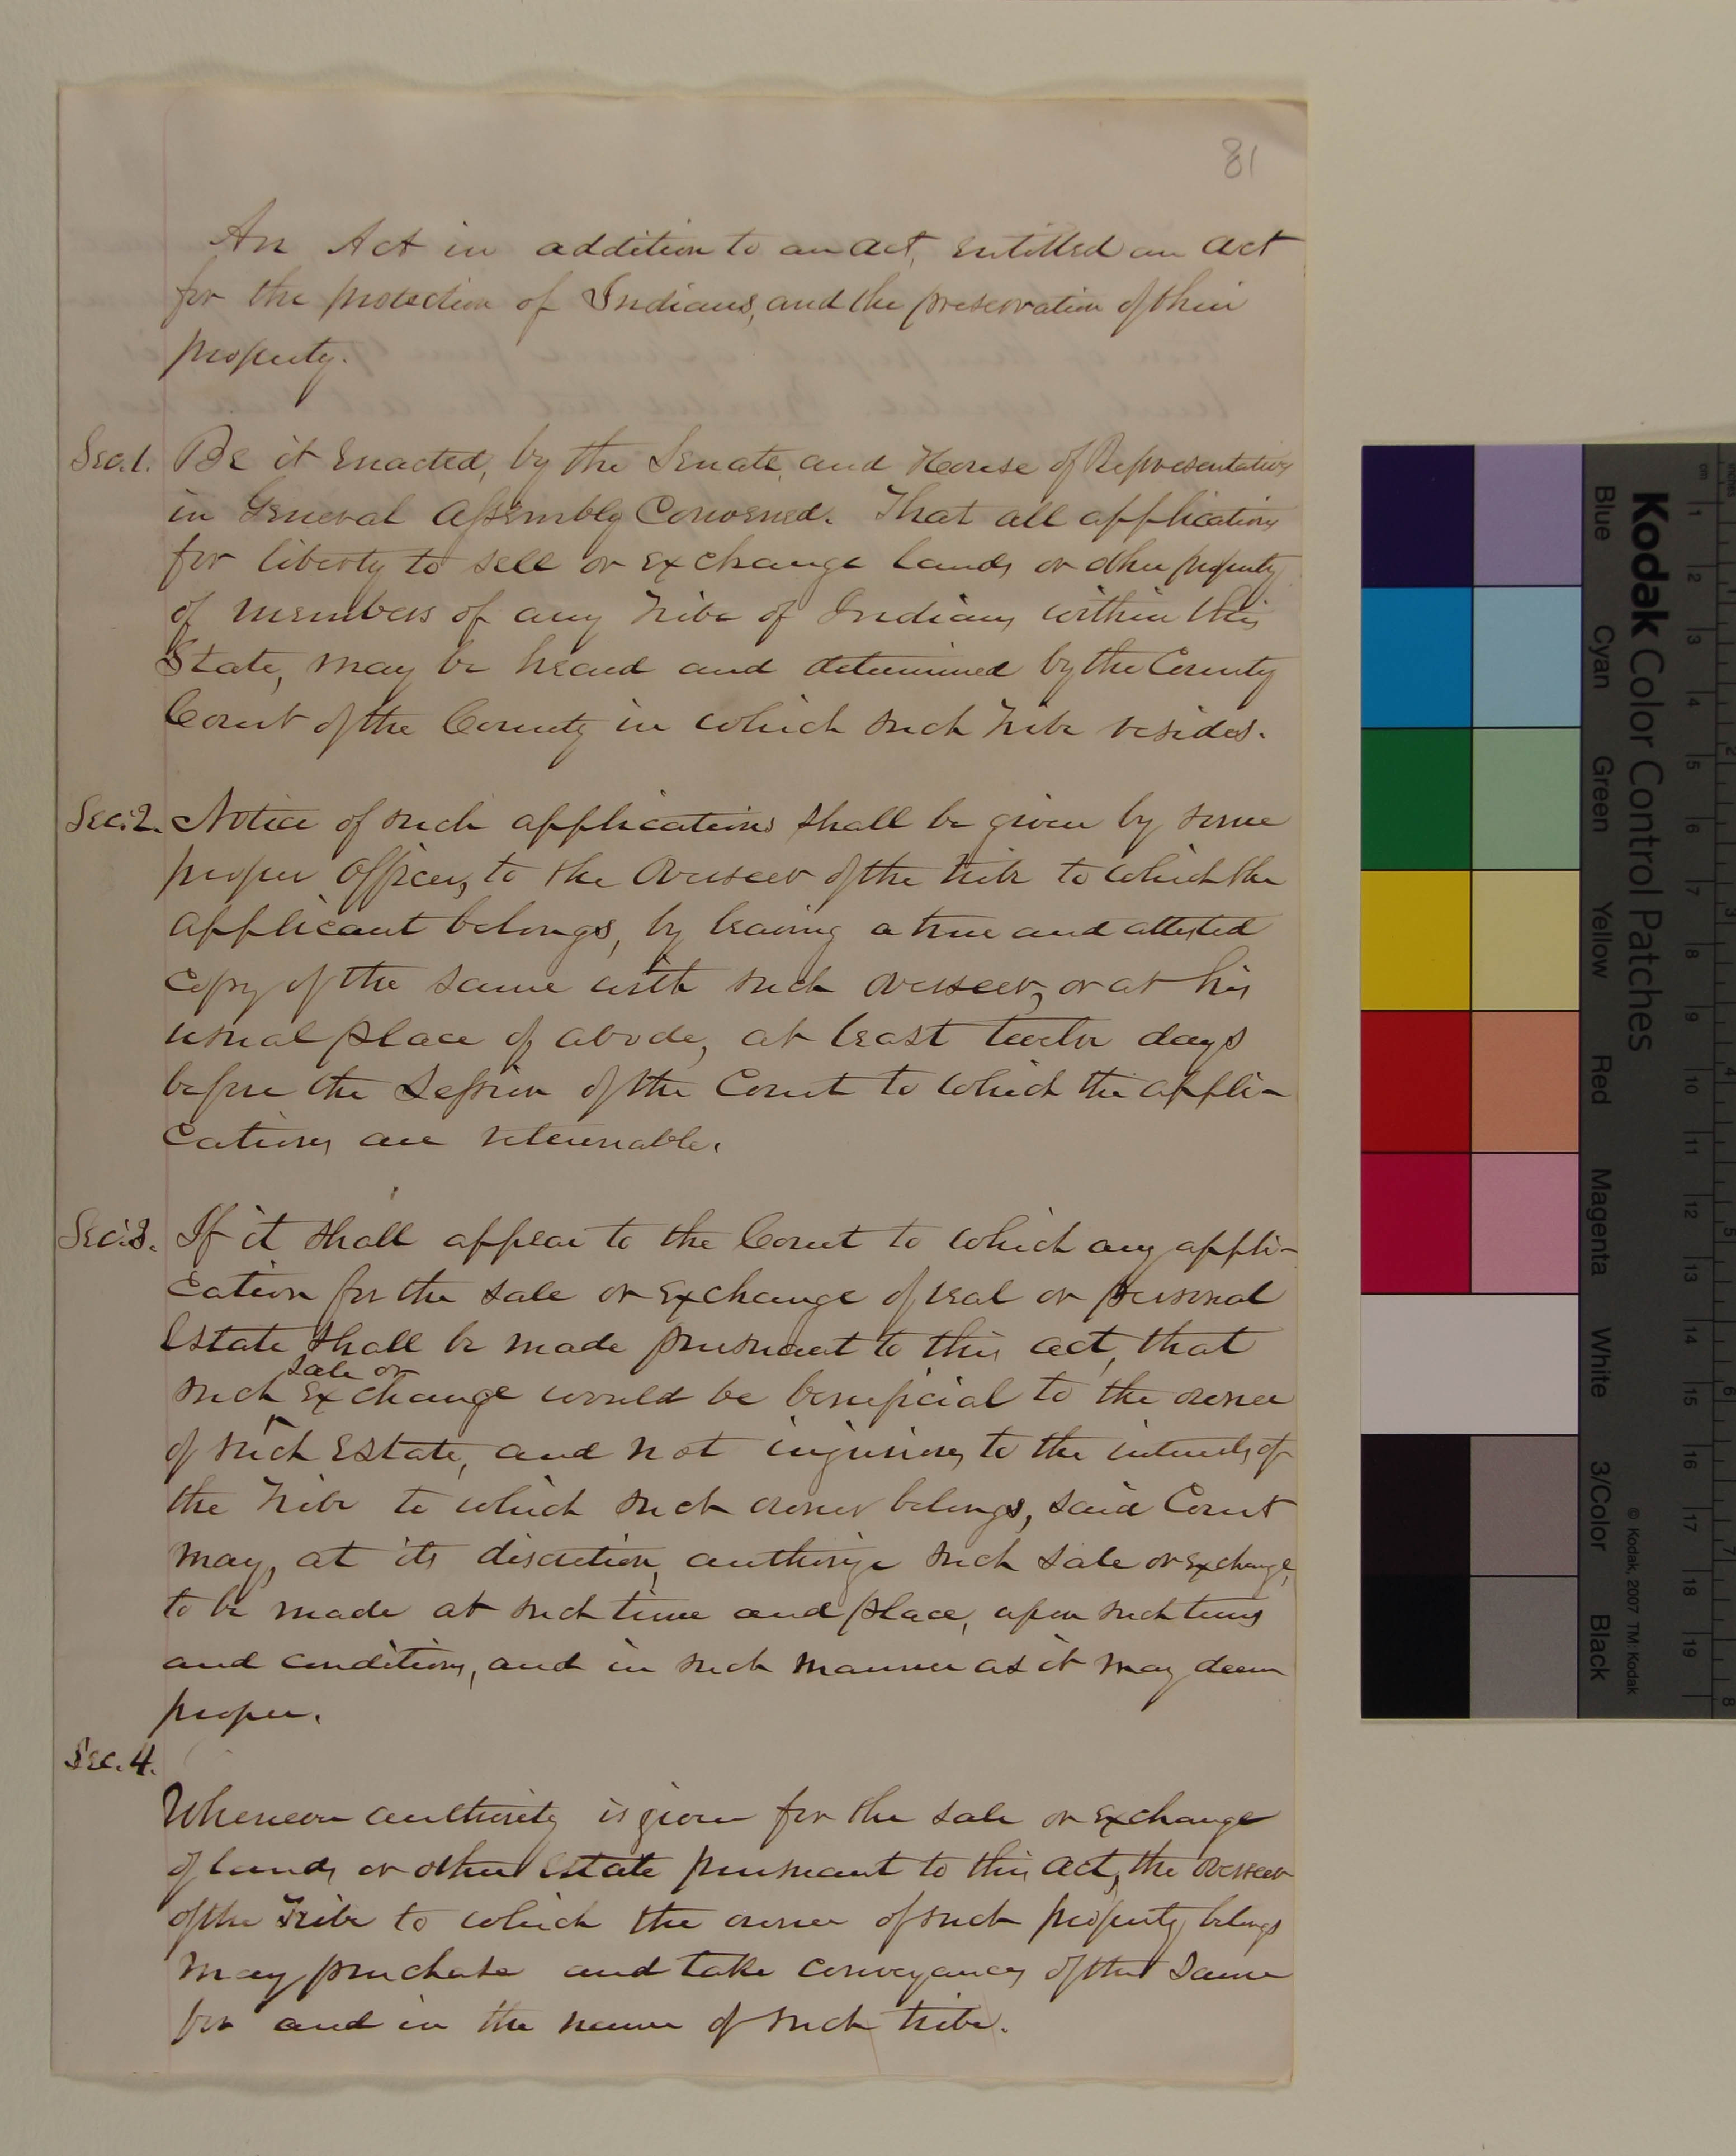 81
An Act in addition to an act, entitled an act
for the protection of Indians, and the preservation of their
property.
Sec. 1. Be it Enacted, by the Senate and House of Representatives
in General Assembly Convened. That all applications
for liberty to sell or exchange lands or other property
of members of any tribe of Indians within this
State, may be heard and determined by the County
Court of the County in which such tribe resides.
Sec. 2. Notice of such applications shall be given by some
proper officer, to the Overseer of the tribe to which the
applicant belongs, by leaving a true and attested
copy of the same with such overseer, or at his
usual place of abode, at least twelve days
before the Session of the Court to which the appli-
cations are returnable.
Sec. 3. If it shall appear to the Court to which any appli-
cation for the sale or exchange of real or personal
Estate shall be made pursuant to this act, that
sale or
such exchange would be beneficial to the owner
of such Estate, and not injurious to the interests of
the tribe to which such owner belongs, said Court
may, at its discretion, authorize such sale or exchange,
to be made at such time and place, upon such terms
and conditions, and in such manner as it may deem
proper.
Sec. 4.
Whenever authority is given for the sale or exchange
of lands or other Estate pursuant to this act, the overseer
of the tribe to which the owner of such property belongs
may purchase and take conveyances of the same
for and in the name of such tribe.
Kodak Color Control Patches
Blue Cyan Green Yellow Red Magenta White 3/Color Black
© Kodak, 2007 TM: Kodak
cm 1 2 3 4 5 6 7 8 9 10 11 12 13 14 15 16 17 18 19